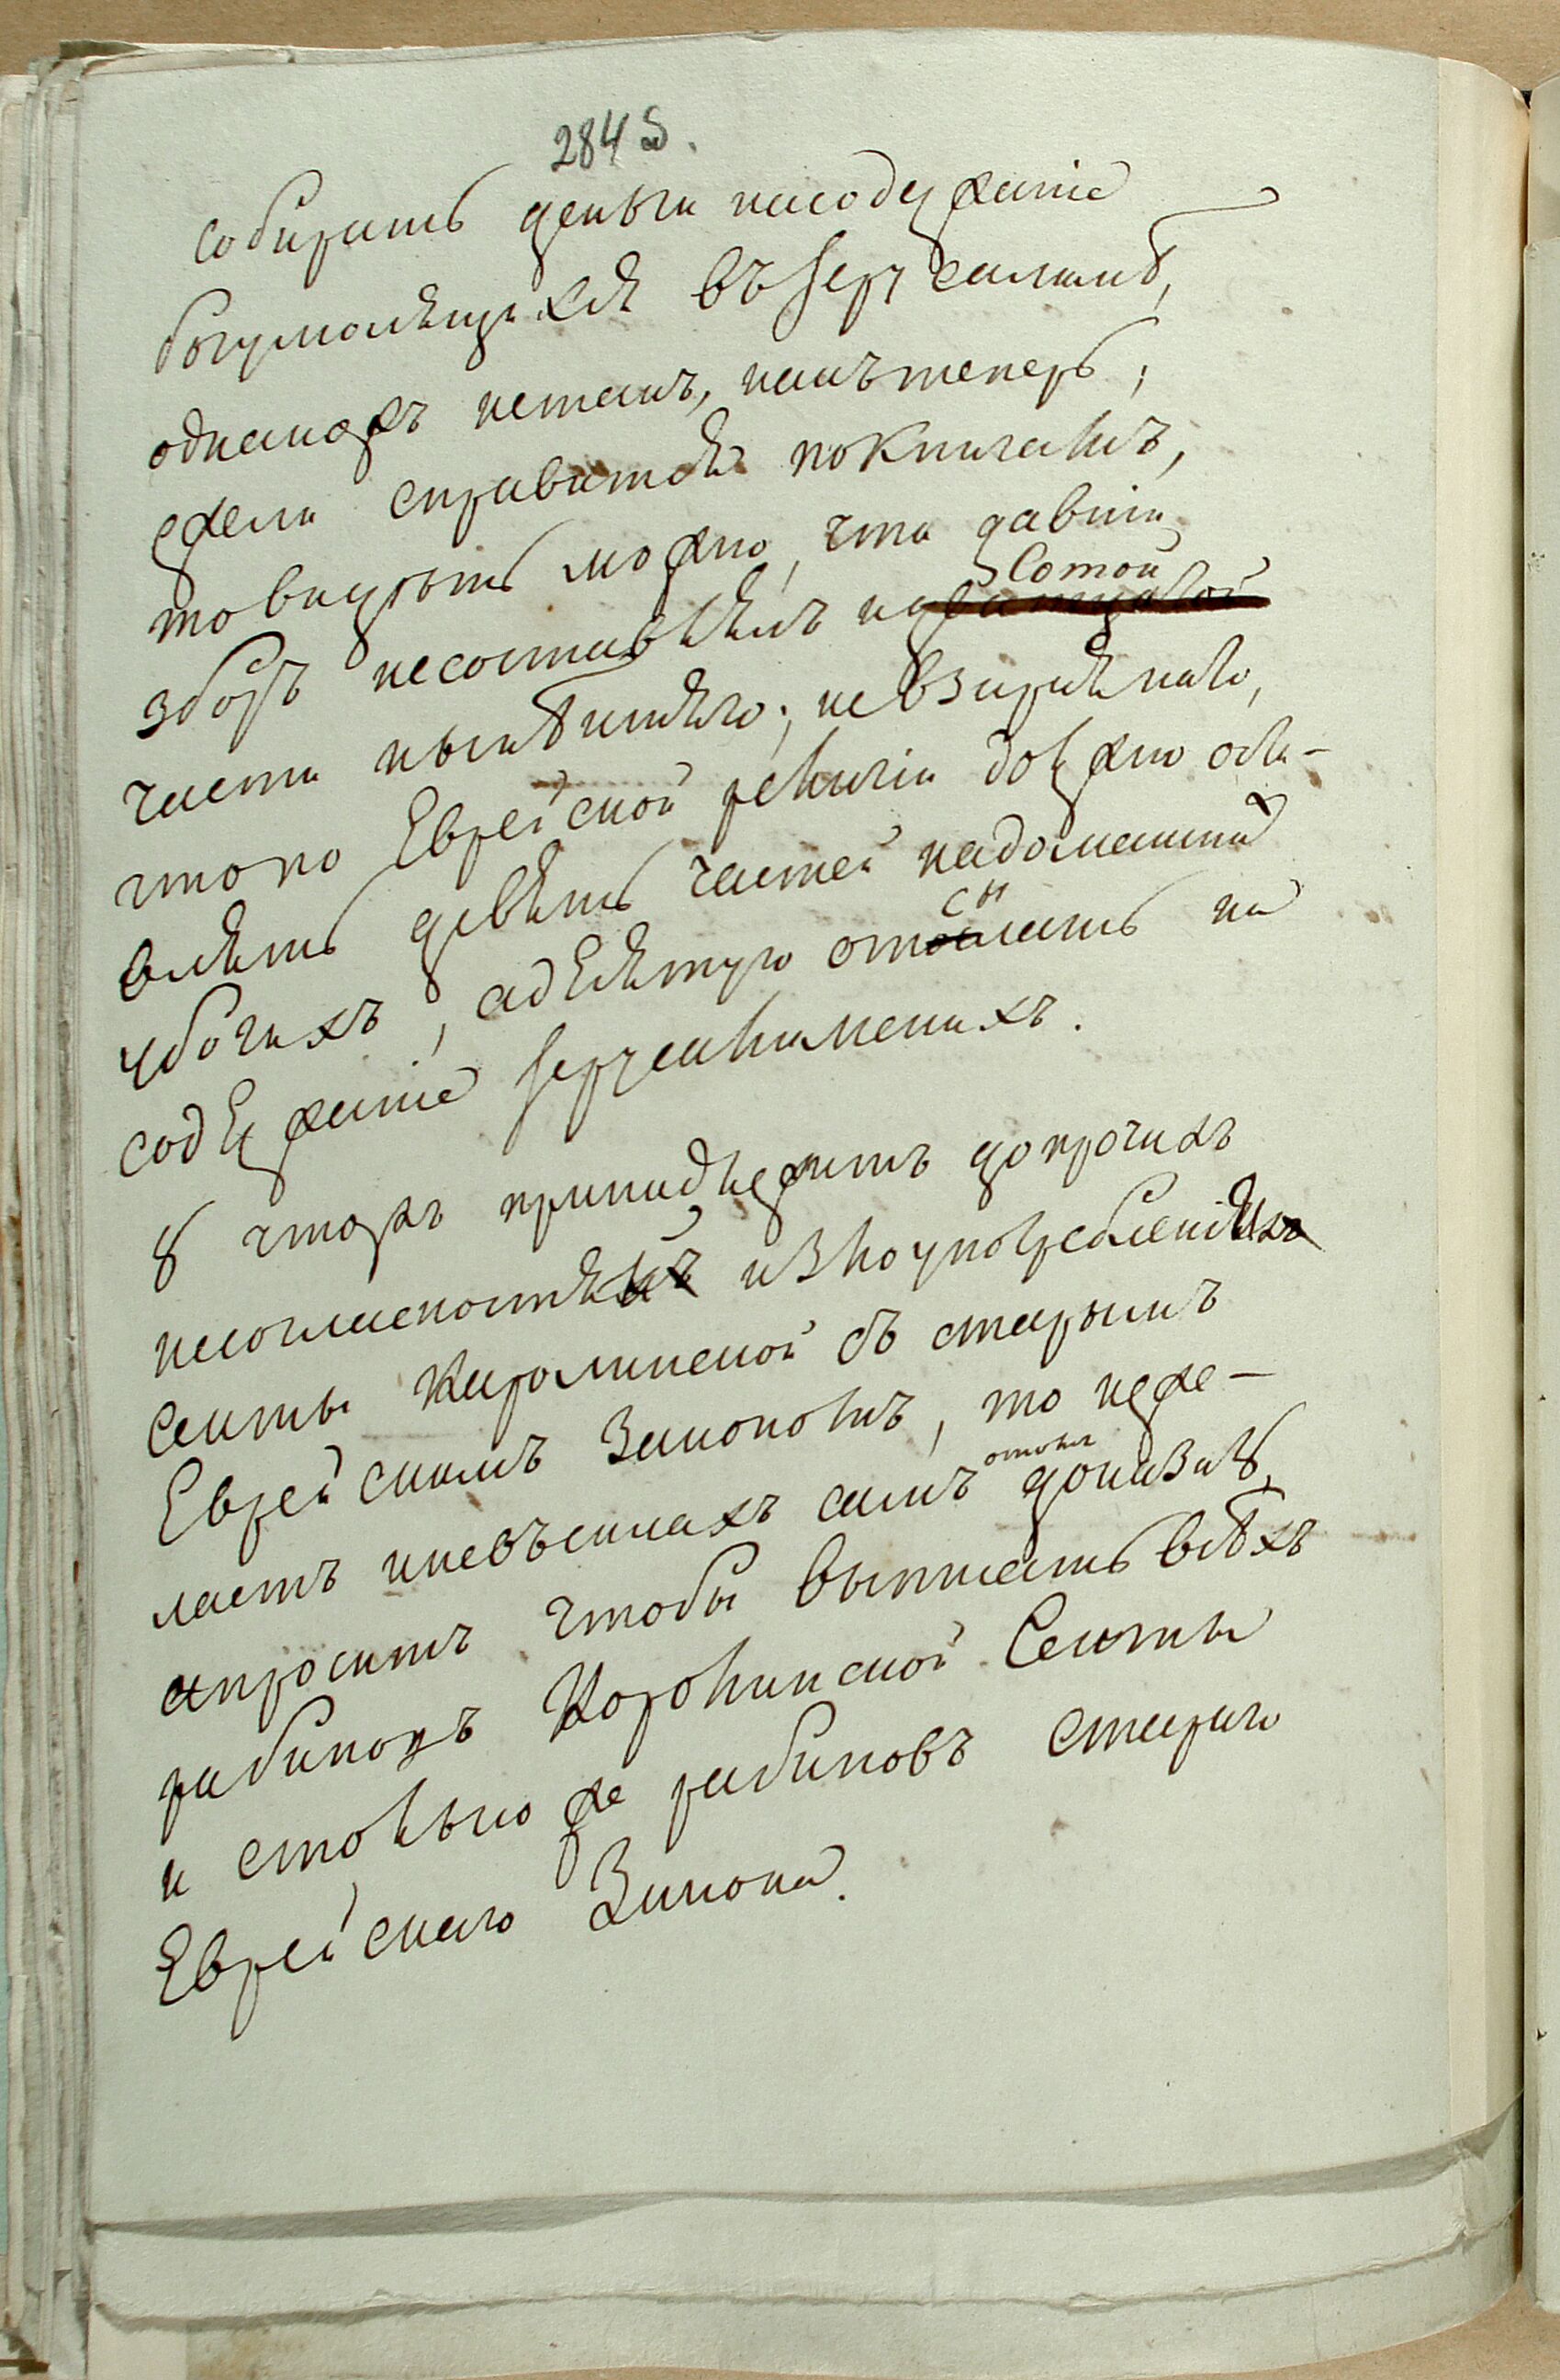 284 б.
собирать деньги насодержание
богумолящихся въ Iерусалимѣ,
однакожъ нетакъ, какътеперь;
ежели справится покнигамъ,
товидѣть можно, что давнiи
зборъ несоставлялъ и дватцатой Сотой
части нынѣшняго; невзирая нато,
что по Еврейской религiи должно оста-
влять девять частей надомашнихъ
убогихъ, адесятую отосылать на
содержанiе Iерусалимскихъ.
8 чтожъ принадлежитъ допрочихъ
несогласностяхъ излоупотребленiяхъ
секты Каролинской съ старымъ
Еврейскимъ Закономъ, то неже-
лаетъ иневъсилахъ самъ отомъ доказать,
апроситъ чтобы выписать всѣхъ
рабиновъ Каролинской Секты
и столько же рабиновъ Стараго
Еврейскаго Закона.